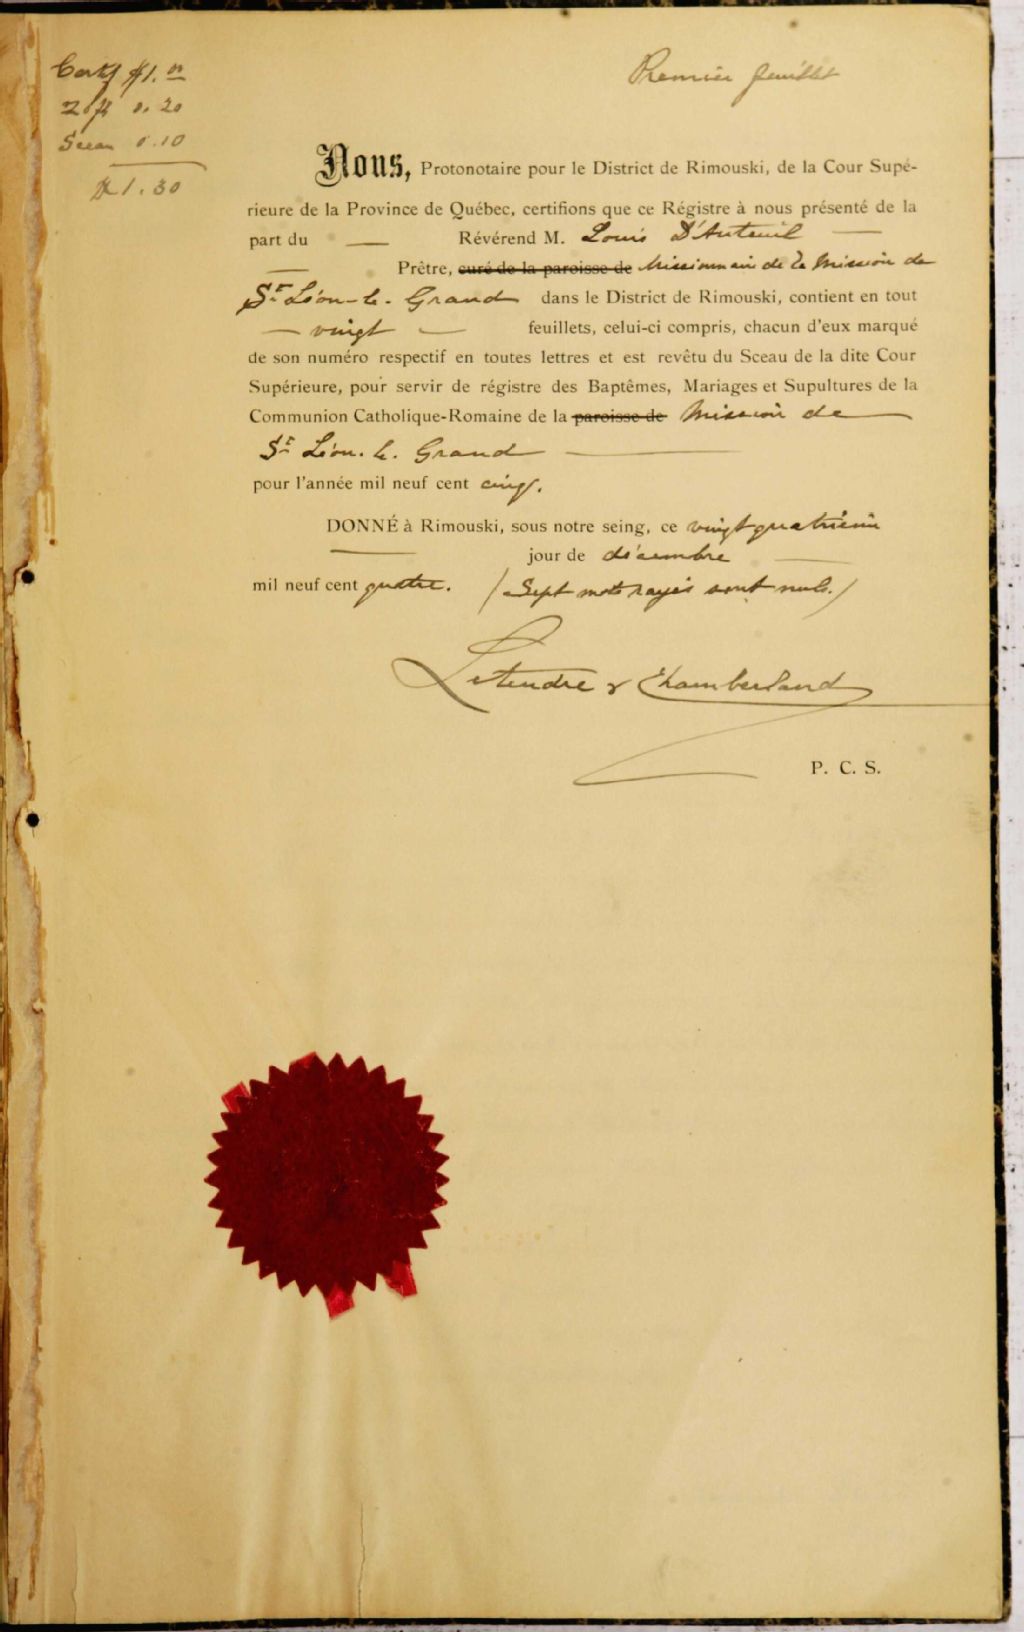 Premier feuillet
Certif $1.00
20 ff 0.20
Sceau 0.10
$1.30
Nous, Protonotaire pour le District de Rimouski, de la Cour Supé-
rieure de la Province de Québec, certifions que ce Régistre à nous présenté de la
part du — Révérend M. Louis D'Auteuil —
— Prêtre, curé de la paroisse de Missionnaire de la Mission de
St Léon-le-Grand dans le District de Rimouski, contient en tout
— vingt — feuillets, celui-ci compris, chacun d'eux marqué
de son numéro respectif en toutes lettres et est revêtu du Sceau de la dite Cour
Supérieure, pour servir de régistre des Baptêmes, Mariages et Supultures de la
Communion Catholique-Romaine de la paroisse de Mission de —
St Léon-le-Grand —
pour l'année mil neuf cent cinq.
DONNÉ à Rimouski, sous notre seing, ce vingt quatrième
— jour de décembre —
mil neuf cent quatre. (Sept mots rayés sont nuls.)
Letendre & Chamberland
P. C. S.